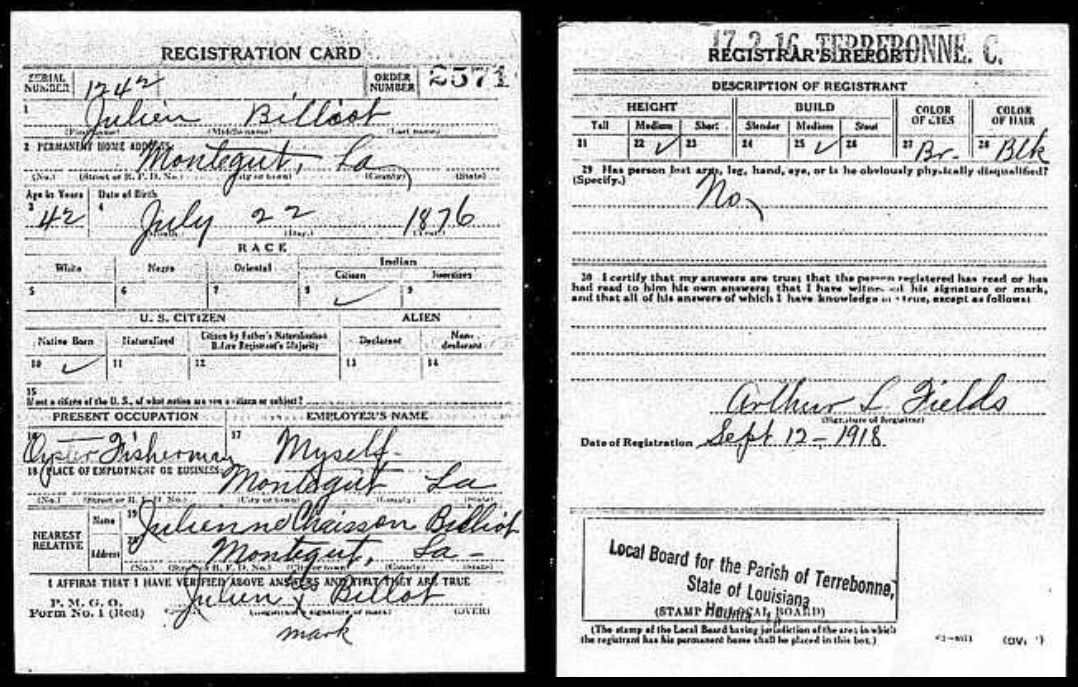 REGISTRATION CARD
SERIAL NUMBER 1242 ORDER NUMBER 2571
1 Julien Billiot
(First name) (Middle name) (Last name)
2 PERMANENT HOME ADDRESS:
Montegut, La
(No.) (Street or R. F. D. No.) (City or town) (County) (State)
Age in Years Date of Birth
3 42 4 July 22 1876
(Month) (Day) (Year)
RACE
White Negro Oriental Indian
Citizen Noncitizen
5 6 7 8 ✓ 9
U. S. CITIZEN ALIEN
Native Born Naturalized Citizen by Father's Naturalization Before Registrant's Majority Declarant Non-declarant
10 ✓ 11 12 13 14
15
If not a citizen of the U. S., of what nation are you a citizen or subject?
PRESENT OCCUPATION EMPLOYER'S NAME
16 Oyster Fisherman 17 Myself
18 PLACE OF EMPLOYMENT OR BUSINESS:
Montegut La
(No.) (Street or R. F. D. No.) (City or town) (County) (State)
NEAREST RELATIVE
Name 19 Julienne Chaisson Billiot
Address 20 Montegut, La -
(No.) (Street or R. F. D. No.) (City or town) (County) (State)
I AFFIRM THAT I HAVE VERIFIED ABOVE ANSWERS AND THAT THEY ARE TRUE
P. M. G. O.
Form No. 1 (Red) Julien x Billot
(Registrant's signature or mark) (OVER)
mark
17-2-16 TERREBONNE. C.
REGISTRAR'S REPORT
DESCRIPTION OF REGISTRANT
HEIGHT BUILD COLOR OF EYES COLOR OF HAIR
Tall Medium Short Slender Medium Stout
21 22 ✓ 23 24 25 ✓ 26 27 Br. 28 Blk
29 Has person lost arm, leg, hand, eye, or is he obviously physically disqualified?
(Specify.)
No
30 I certify that my answers are true; that the person registered has read or has
had read to him his own answers; that I have witnessed his signature or mark,
and that all of his answers of which I have knowledge are true, except as follows:
Arthur L Fields
(Signature of Registrar)
Date of Registration Sept 12 - 1918
Local Board for the Parish of Terrebonne,
State of Louisiana
Houma La
(STAMP OF LOCAL BOARD)
(The stamp of the Local Board having jurisdiction of the area in which
the registrant has his permanent home shall be placed in this box.)
(OVER)